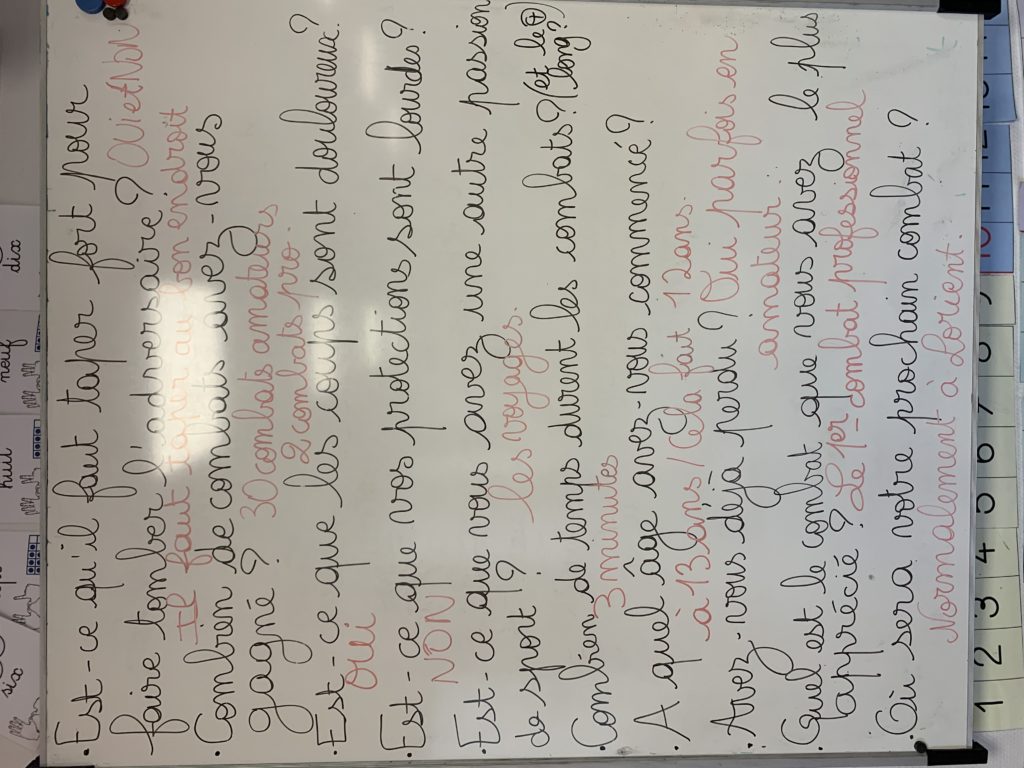 six
sept
huit
neuf
dix
• Est-ce qu'il faut taper fort pour
faire tomber l'adversaire ? Oui et Non
Il faut taper au bon endroit
• Combien de combats avez-vous
gagné ? 30 combats amateurs
2 combats pro.
• Est-ce que les coups sont douloureux ?
OUi
• Est-ce que vos protections sont lourdes ?
NON
• Est-ce que vous avez une autre passion
de sport ? les voyages.
• Combien de temps durent les combats ? (et le + long ?)
3 minutes
• A quel âge avez-vous commencé ?
à 13 ans / Cela fait 12 ans.
• Avez-vous déjà perdu ? Oui parfois en
amateur.
• Quel est le combat que vous avez le plus
apprécié ? Le 1er combat professionnel
• Où sera votre prochain combat ?
Normalement à Lorient.
1 2 3 4 5 6 7 8 9 10 11 12 13